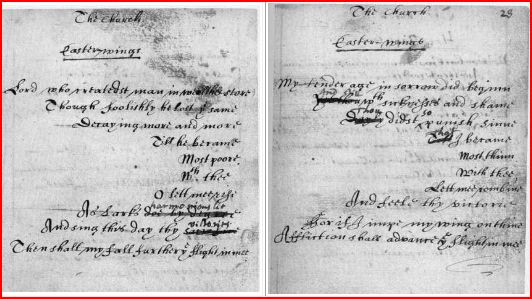 The Church
Easter-wings
Lord who createdst man in wealth & store
Though foolishly he lost ye same
Decaying more and more
Till he became
Most poore
Wth thee
O lett mee rise
As Larks harmoniously
And sing this day thy victories
Then shall my fall further ye flight in mee
The Church
28
Easter-wings
My tender age in sorrow did beginn
sicknesses and shame
didst so punish sinne
That I became
Most thinn
With thee
Let mee combine
And feele thy victorie
For if I impe my wing on thine
Affliction shall advance ye flight in mee